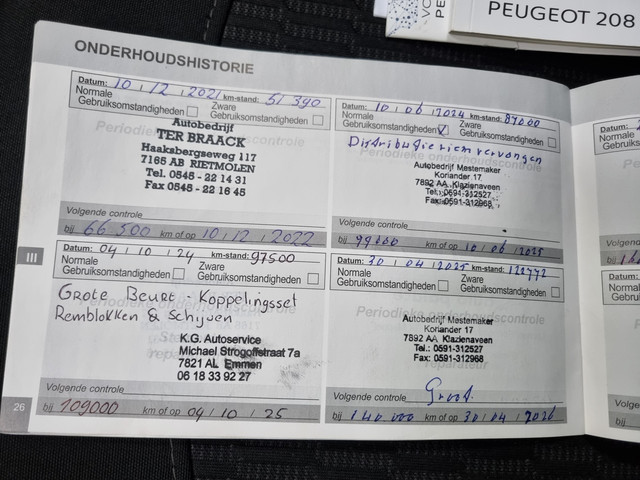 PEUGEOT 208
ONDERHOUDSHISTORIE
Datum: 10 / 12 / 2021 km-stand: 51 390
Normale Gebruiksomstandigheden
Zware Gebruiksomstandigheden
Autobedrijf
TER BRAACK
Haaksbergseweg 117
7165 AB RIETMOLEN
Tel. 0545 - 22 14 31
Fax 0545 - 22 16 45
Volgende controle
bij 66 500 km of op 10 / 12 / 2022
Datum: 10 / 06 / 2024 km-stand: 87000
Normale Gebruiksomstandigheden
Zware Gebruiksomstandigheden
Distributieriem vervangen
Autobedrijf Mestemaker
Koriander 17
7892 AA Klazienaveen
Tel.: 0591-312527
Fax: 0591-312968
Volgende controle
bij km of op 10 / 06 / 2025
III
Datum: 04 / 10 / 24 km-stand: 97500
Normale Gebruiksomstandigheden
Zware Gebruiksomstandigheden
Grote Beurt - Koppelingsset
Remblokken & Schijven
K.G. Autoservice
Michael Strogoffstraat 7a
7821 AL Emmen
06 18 33 92 27
Volgende controle
bij 109000 km of op 04 / 10 / 25
Datum: 30 / 04 / 2025 km-stand:
Normale Gebruiksomstandigheden
Zware Gebruiksomstandigheden
Periodieke onderhoudscontrole
Autobedrijf Mestemaker
Koriander 17
7892 AA Klazienaveen
Tel.: 0591-312527
Fax: 0591-312968
reparateur
Volgende controle
Groot
bij 140 000 km of op 30 / 04 / 2026
26